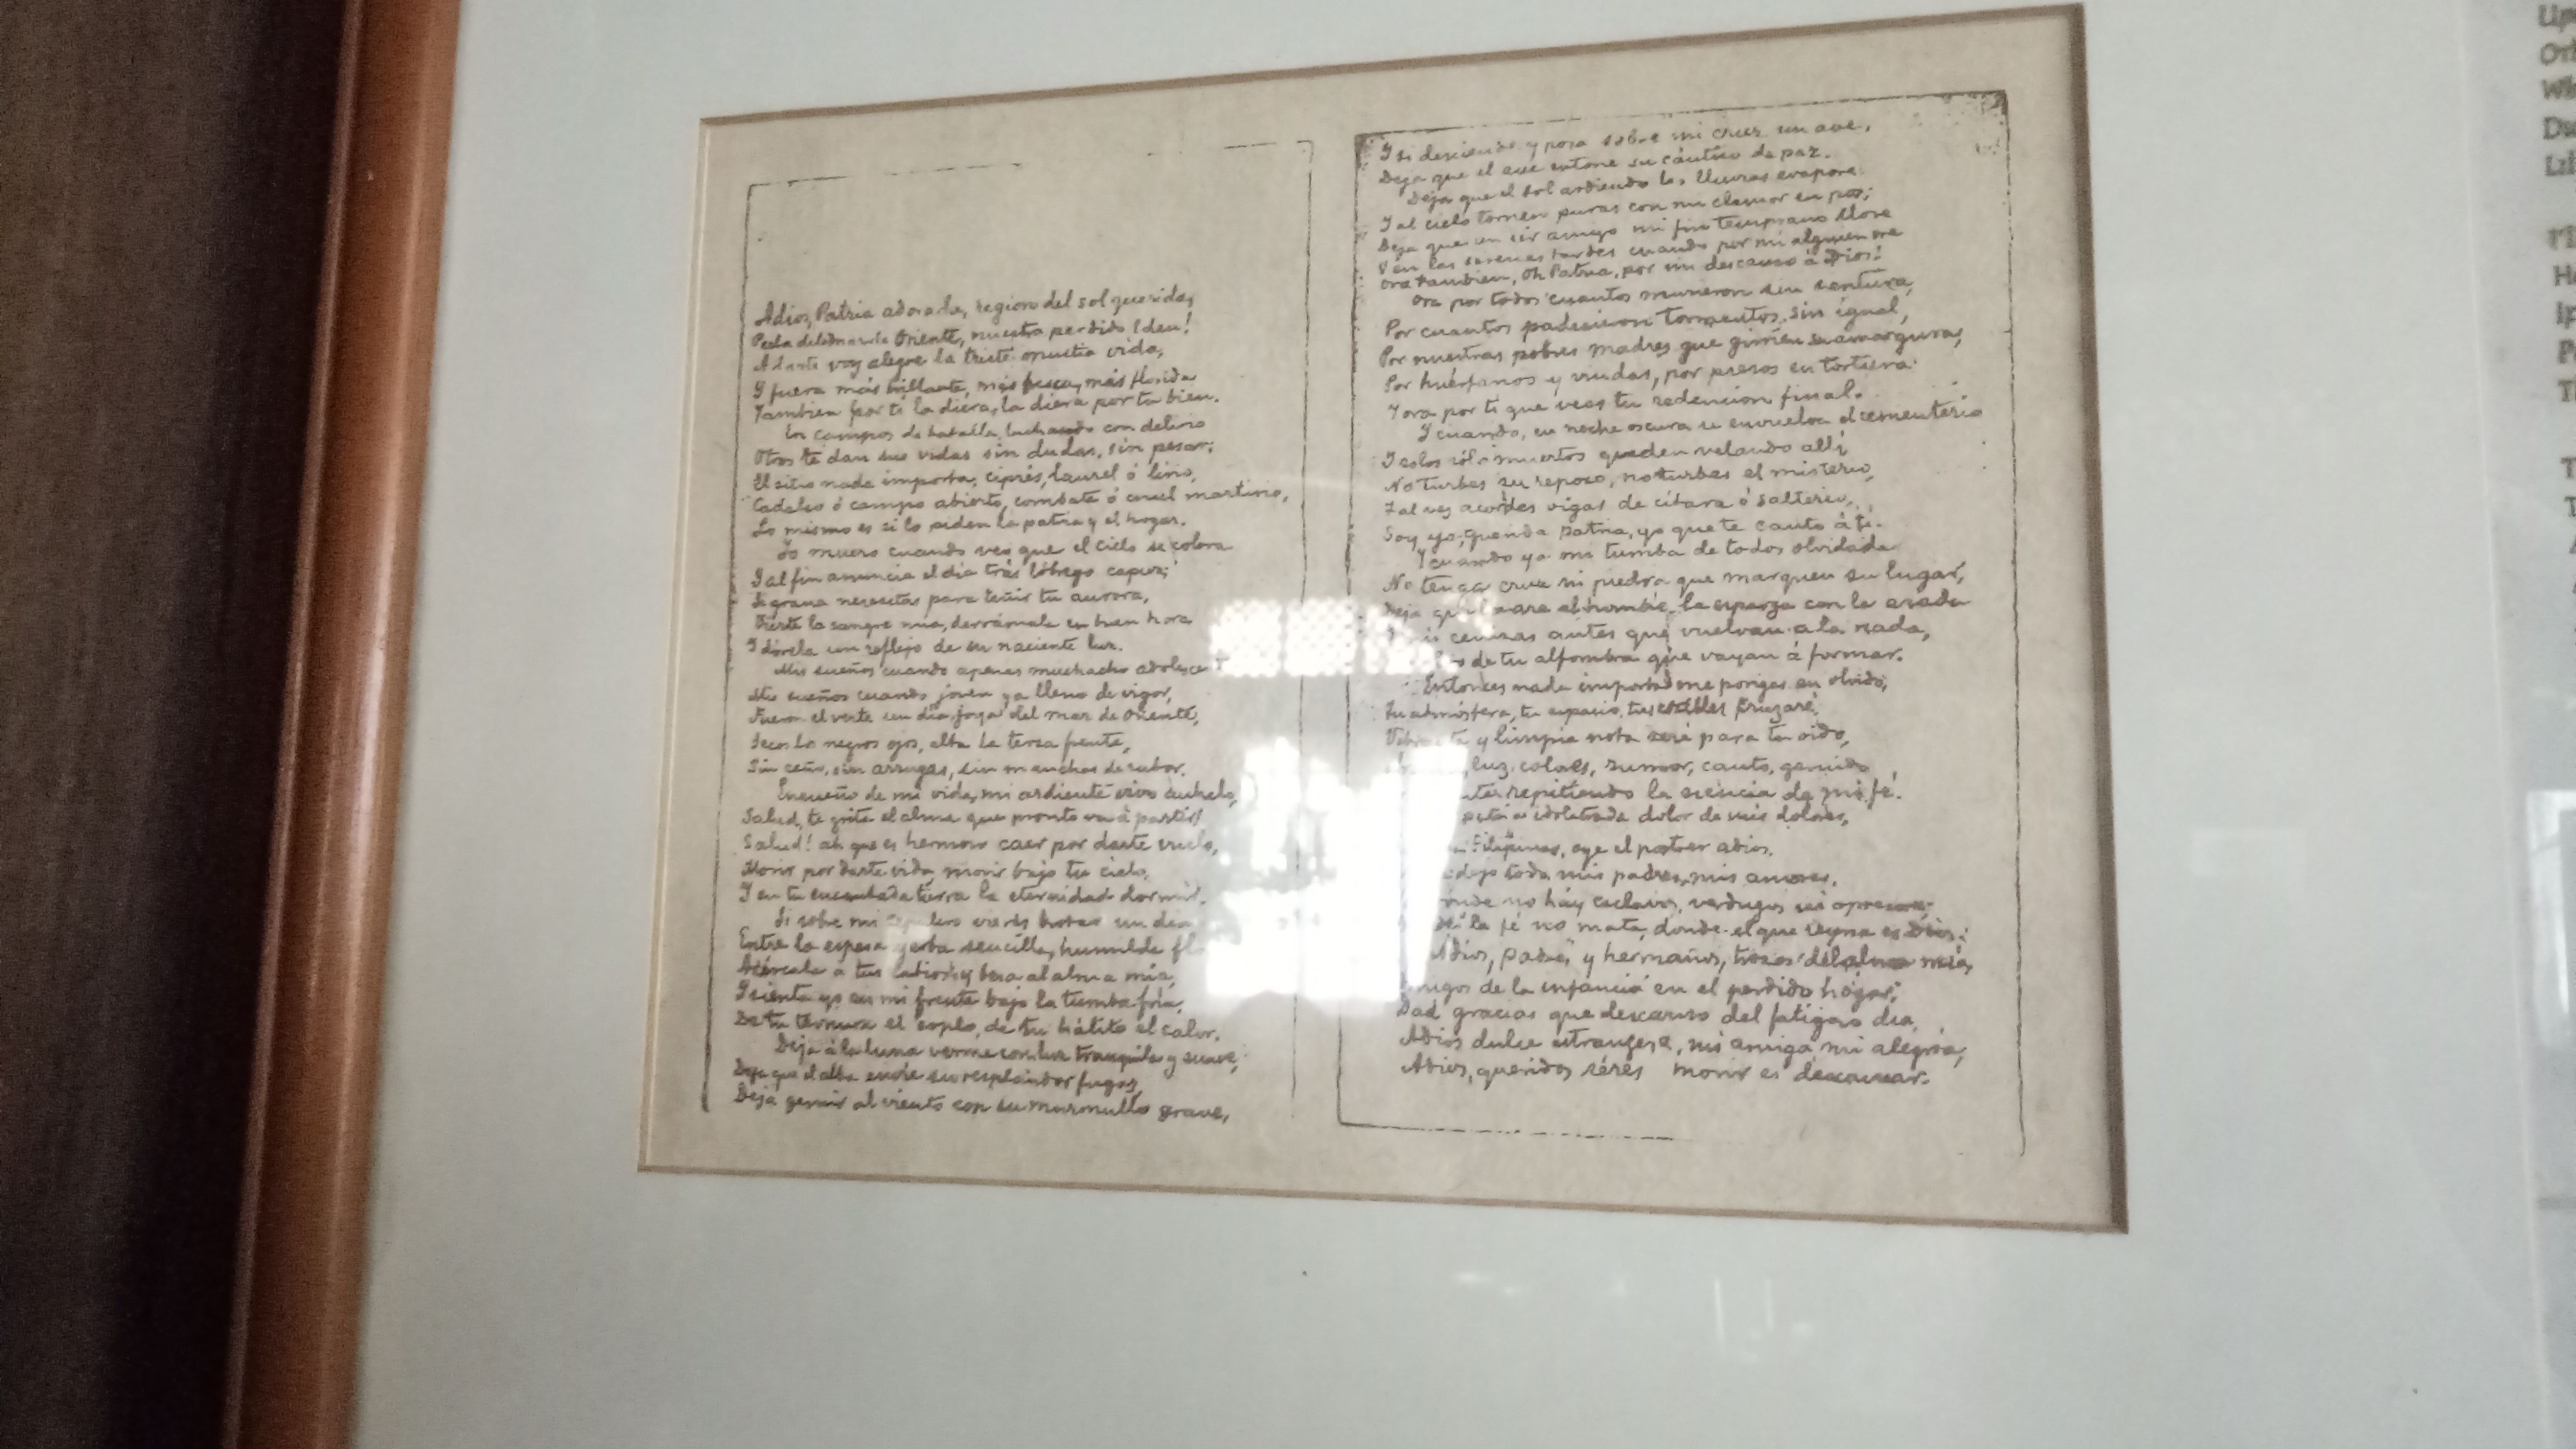 Adios, Patria adorada, region del sol querida,
Perla del mar de Oriente, nuestro perdido Eden!
A darte voy alegre la triste mustia vida,
Y fuera más brillante, más fresca, más florida
Tambien por tí la diera, la diera por tu bien.
En campos de batalla, luchando con delirio
Otros te dan sus vidas sin dudas, sin pesar;
El sitio nada importa, ciprés, laurel ó lirio,
Cadalso ó campo abierto, combate ó cruel martirio,
Lo mismo es si lo piden la patria y el hogar.
Yo muero cuando veo que el cielo se colora
Y al fin anuncia el dia trás lóbrego capuz;
Si grana necesitas para teñir tu aurora,
Vierte la sangre mia, derrámala en buen hora
Y dórela un reflejo de su naciente luz.
Mis sueños cuando apenas muchacho adolescent
Mis sueños cuando joven ya lleno de vigor,
Fueron el verte un dia joya del mar de Oriente,
Secos los negros ojos, alta la tersa frente,
Sin ceño, sin arrugas, sin manchas de rubor.
Ensueño de mi vida, mi ardiente vivo anhelo,
Salud, te grita el alma que pronto va á partir!
Salud! ah que es hermoso caer por darte vuelo,
Morir por darte vida, morir bajo tu cielo,
Y en tu encantada tierra la eternidad dormir.
Si sobre mi sepulcro vieres brotar un dia
Entre la espesa yerba sencilla, humilde fl
Acércala a tus labios y besa al alma mía,
Y sienta yo en mi frente bajo la tumba fria,
De tu ternura el soplo, de tu hálito el calor.
Deja á la luna verme con luz tranquila y suave;
Deja que el alba envíe su resplandor fugaz,
Deja gemir al viento con su murmullo grave,
Y si desciende y posa sobre mi cruz un ave,
Deja que el ave entone su cántico de paz.
Deja que el sol ardiendo las lluvias evapore
Y al cielo tornen puras con mi clamor en pos;
Deja que un sér amigo mi fin temprano llore
Y en las serenas tardes cuando por mi alguien ore
Ora tambien, Oh Patria, por mi descanso á Dios!
Ora por todos cuantos murieron sin ventura,
Por cuantos padecieron tormentos sin igual,
Por nuestras pobres madres que gimen su amargura,
Por huérfanos y viudas, por presos en tortura
Y ora por ti que veas tu redencion final.
Y cuando, en noche oscura se envuelva el cementerio
Y solos sólo muertos queden velando allí,
No turbes su reposo, no turbes el misterio,
Tal vez acordes oigas de cítara ó salterio,
Soy yo, querida Patria, yo que te canto á tí.
Y cuando ya mi tumba de todos olvidada
No tenga cruz ni piedra que marquen su lugar,
Deja que la are el hombre, la esparza con la azada
cenizas antes que vuelvan a la nada,
de tu alfombra que vayan á formar.
Entonces nada importa me pongas en olvido,
Tu atmósfera, tu espacio, tus valles cruzaré,
y limpia nota seré para tu oido,
luz, colores, rumor, canto, gemido
repitiendo la esencia de mi fé.
idolatrada dolor de mis dolores,
Filipinas, oye el postrer adios.
dejo todo, mis padres, mis amores.
donde no háy esclavos, verdugos ni opresores;
la fé no mata, donde el que reyna es Dios.
Adios, padres y hermanos, trozos del alma mía,
Amigos de la infancia en el perdido hogar,
Dad gracias que descanso del fatigoso dia,
Adios dulce estrangera, mi amiga, mi alegria,
Adios, queridos séres morir es descansar.